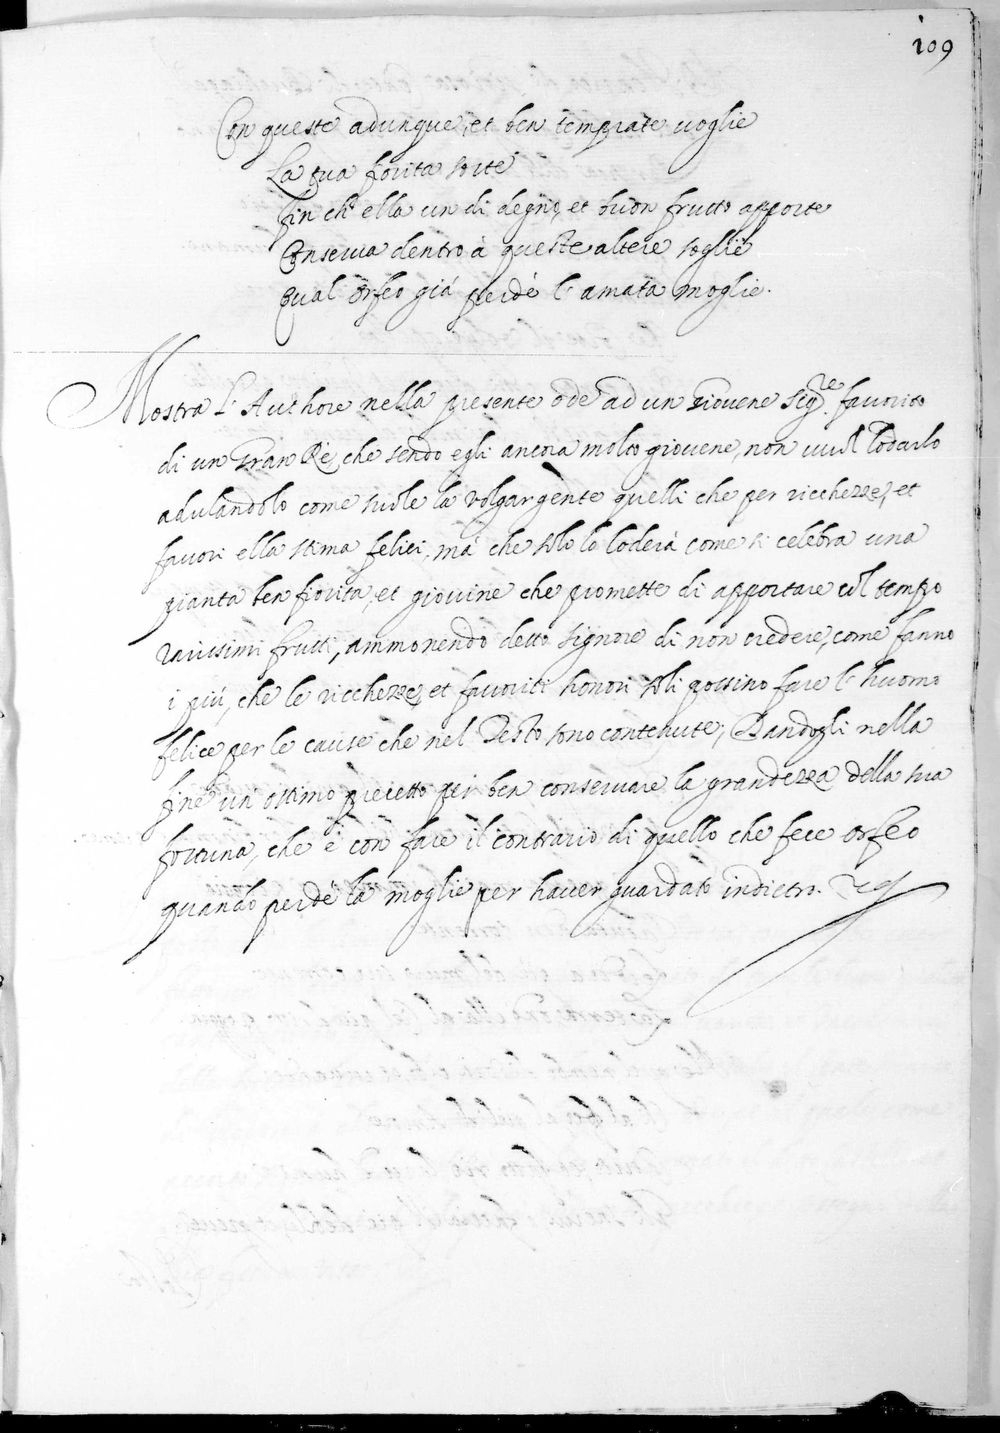 109
Con queste adunque, et ben temprate uoglie
La tua fiorita sorte
Fin ch' ella un di degno, et buon frutto apporte
Conserua dentro à queste altere soglie
Qual Orfeo già perdè l' amata moglie.
Mostra l' Authore nella presente ode ad un Giouene Sig.re fauorito
di un Gran Rè, che sendo egli ancora molto giouene, non uuol lodarlo
adulandolo come suole la volgar gente quelli che per ricchezze, et
fauori ella stima felici, mà che solo lo loderà come si celebra una
pianta ben fiorita, et giouine che promette di apportare col tempo
rarissimi frutti, ammonendo detto Signore di non credere, come fanno
i più, che le ricchezze, et fauoriti honori soli possino fare l' huomo
felice per le cause che nel Testo sono contenute; Dandogli nella
fine un' ottimo precetto per ben conseruare la grandezza della sua
fortuna, che è con fare il contrario di quello che fece Orfeo
quando perdè la moglie per hauer guardato indietro.